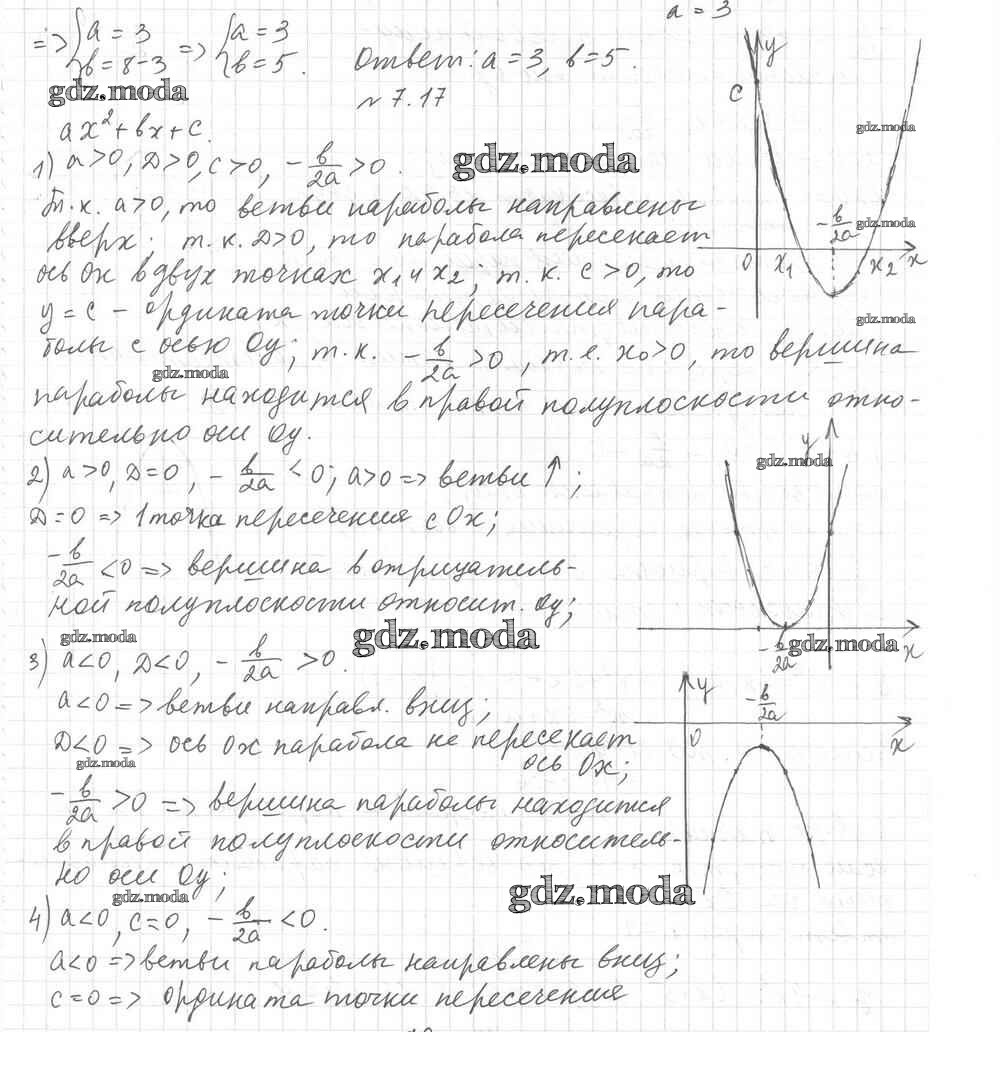 a = 3
=> { a = 3 b = 8-3 => { a = 3 b = 5. Ответ: a = 3, b = 5.
gdz.moda
N 7.17
ax² + bx + c.
gdz.moda
1) a>0, D>0, c>0, -b/2a >0.
Т.к. a>0, то ветви параболы направлены
вверх; т.к. D>0, то парабола пересекает
ось Ox в двух точках x₁ и x₂; т.к. c>0, то
y = c – ордината точки пересечения пара-
болы с осью Oy; т.к. -b/2a >0, т.е. x₀>0, то вершина
gdz.moda
параболы находится в правой полуплоскости отно-
сительно оси Oy.
y
c
gdz.moda
-b/2a
gdz.moda
0 x₁ x₂ x
gdz.moda
2) a>0, D=0, -b/2a <0; a>0 => ветви ↑;
D=0 => 1 точка пересечения с Ox;
-b/2a <0 => вершина в отрицатель-
ной полуплоскости относит. Oy;
y
gdz.moda
-b/2a
gdz.moda
x
gdz.moda
gdz.moda
3) a<0, D<0, -b/2a >0.
a<0 => ветви направл. вниз;
D<0 => ось Ox парабола не пересекает
ось Ox;
gdz.moda
-b/2a >0 => вершина параболы находится
в правой полуплоскости относитель-
но оси Oy;
y
-b/2a
0
x
gdz.moda
gdz.moda
4) a<0, c=0, -b/2a <0.
a<0 => ветви параболы направлены вниз;
c=0 => ордината точки пересечения